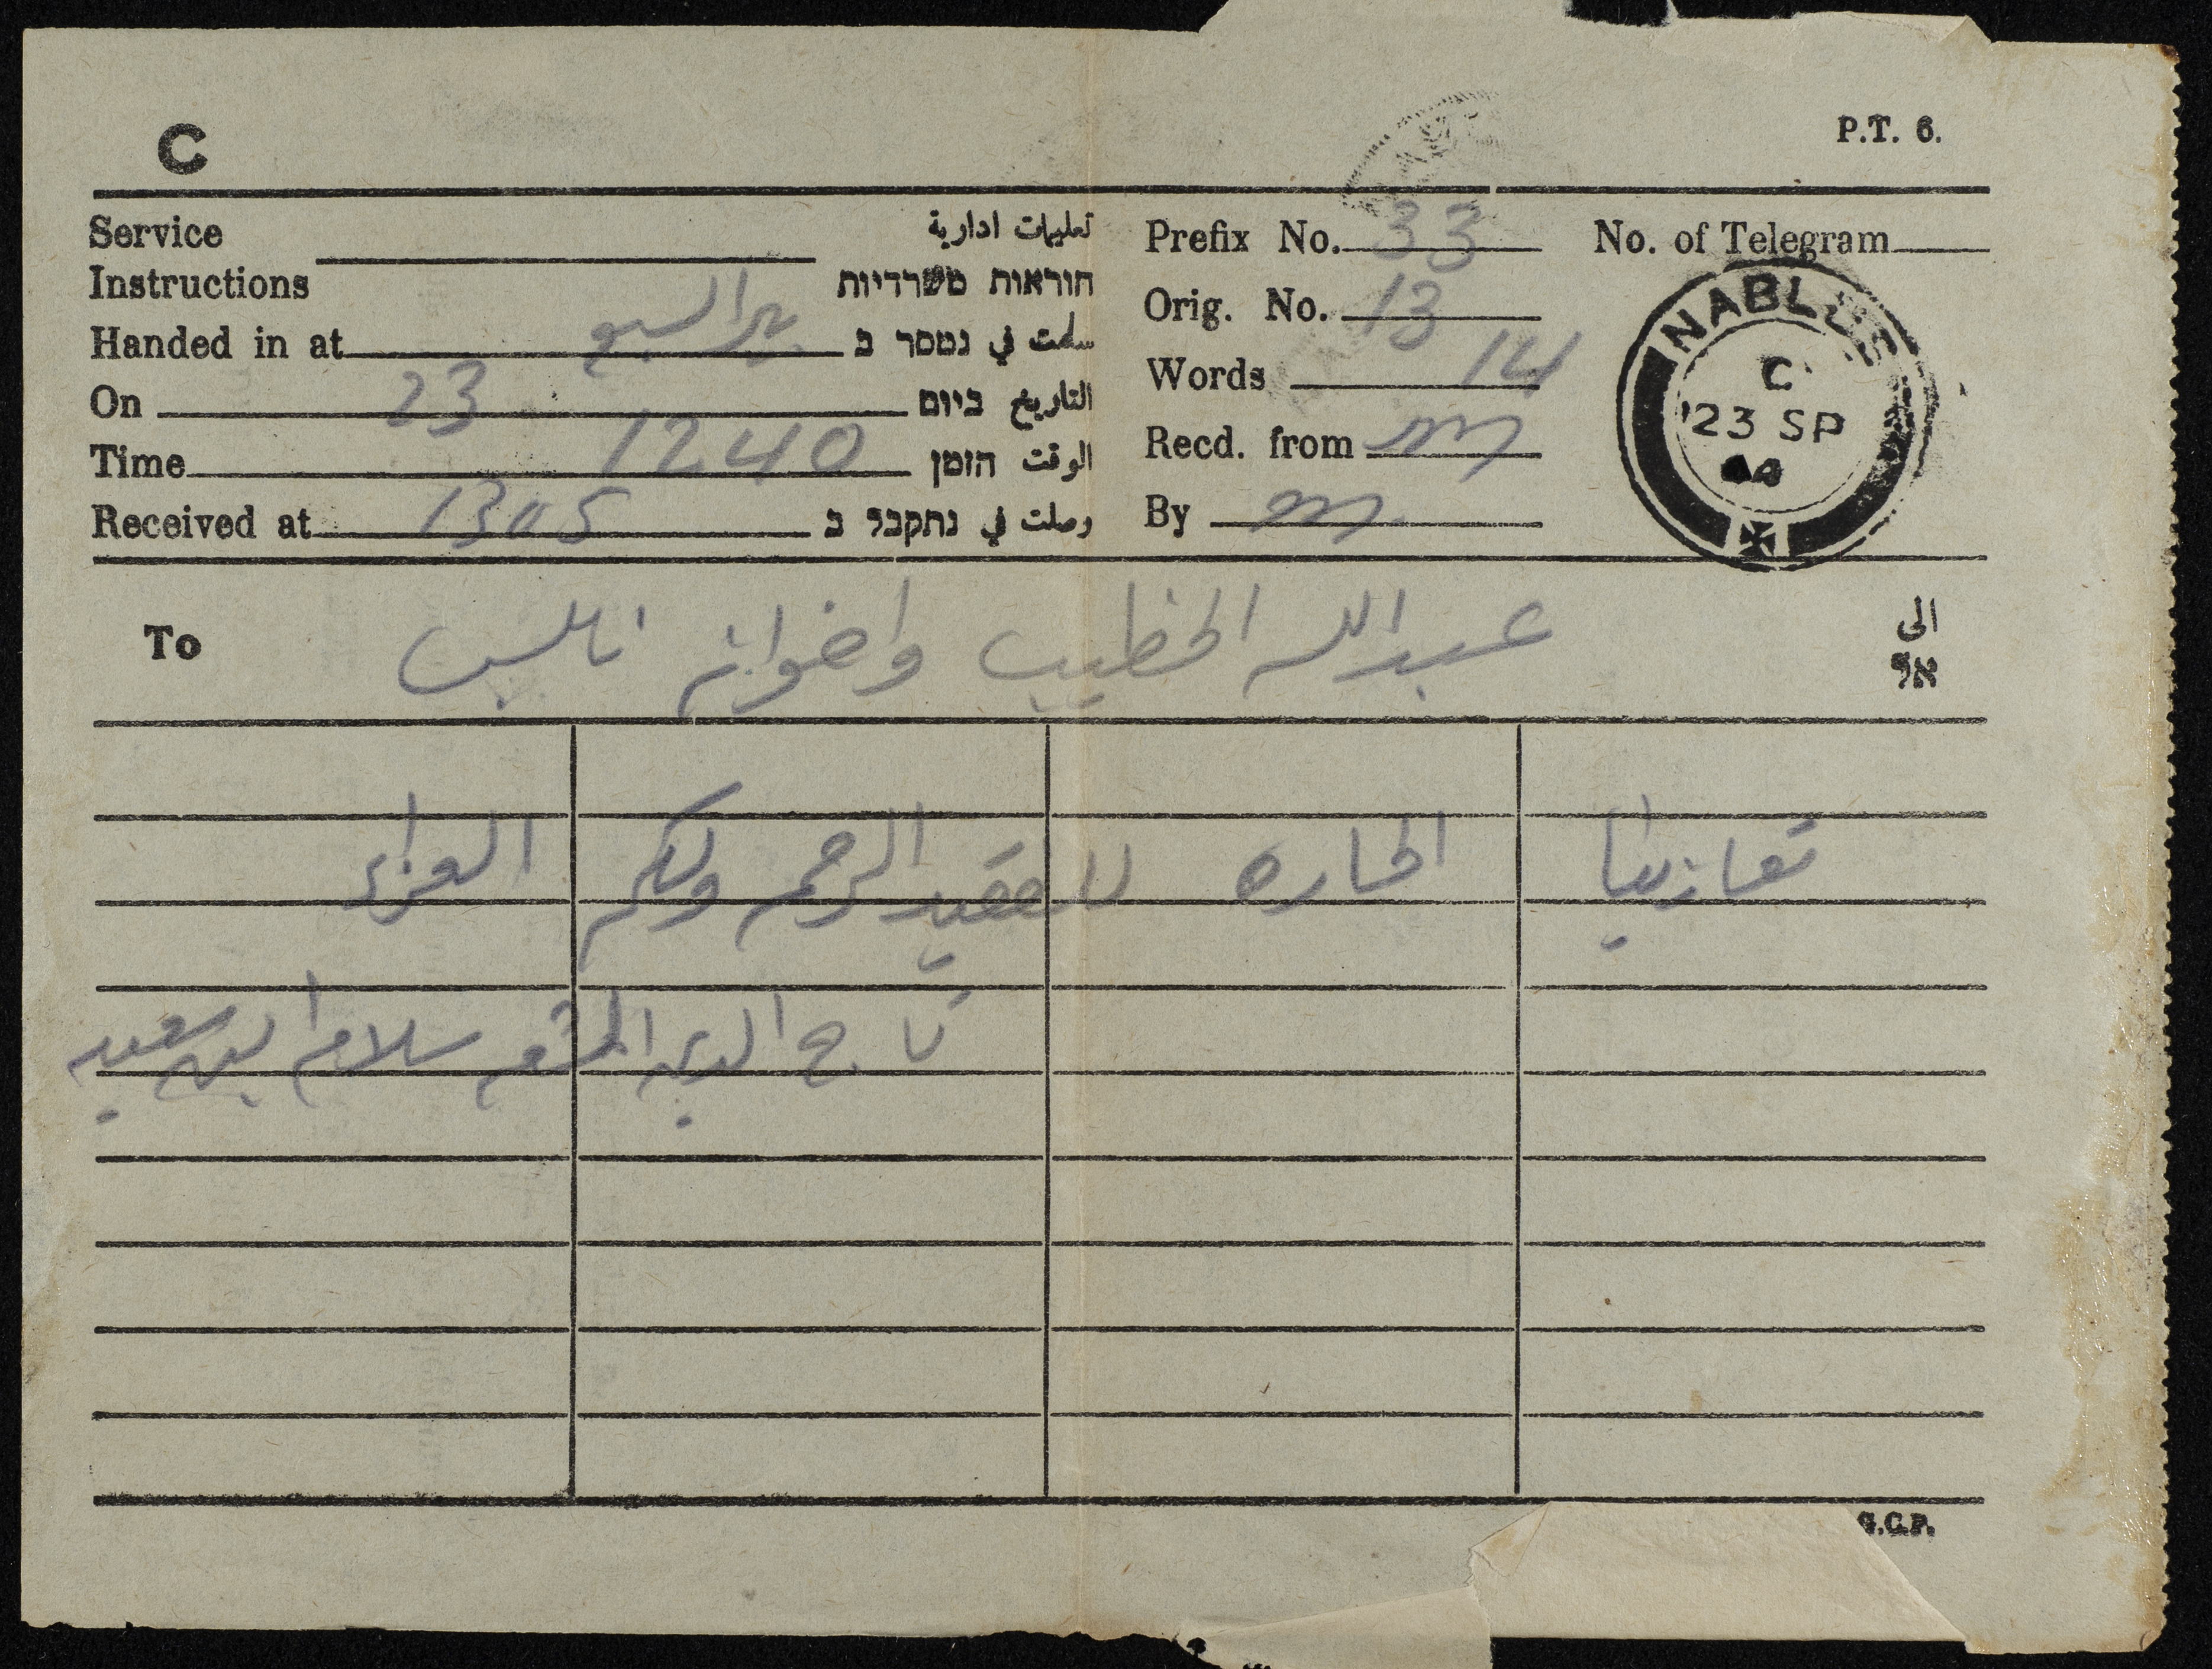 C
P.T. 6.
Service Instructions تعليمات ادارية הוראות משרדיות
Handed in at بئر السبع سلمت في נמסר ב
On 23 التاريخ ביום
Time 1240 الوقت הזמן
Received at 1305 وصلت في נתקבל ב
Prefix No. 33
No. of Telegram
Orig. No. 13
Words 14
Recd. from
By
NABLUS
C
23 SP
To عبدالله الخطيب واخوانه نابلس الى אל
تعازينا الحاره للفقيد الرحمه ولكم العزاء
تاج الدين سلام ابن سعيد
G.C.P.